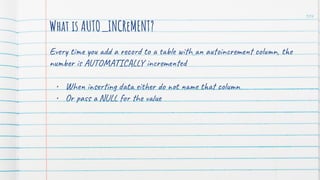 What is AUTO_INCREMENT?
Every time you add a record to a table with an autoincrement column, the
number is AUTOMATICALLY incremented
• When inserting data either do not name that column
• Or pass a NULL for the value